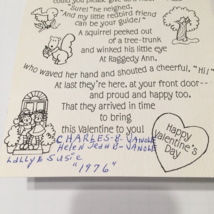 could you please give us a ride?"
"Sure!" he neighed,
"And my little redbird friend
can be your guide!"
A squirrel peeked out
of a tree-trunk
and winked his little eye
At Raggedy Ann.
who waved her hand and shouted a cheerful, "Hi!"
At last they're here, at your front door—
and proud and happy too.
That they arrived in time
to bring
this Valentine to you!
Happy
Valentine's
Day
CHARLES-B-
Helen Jean B-
Lully & Susie
"1976"